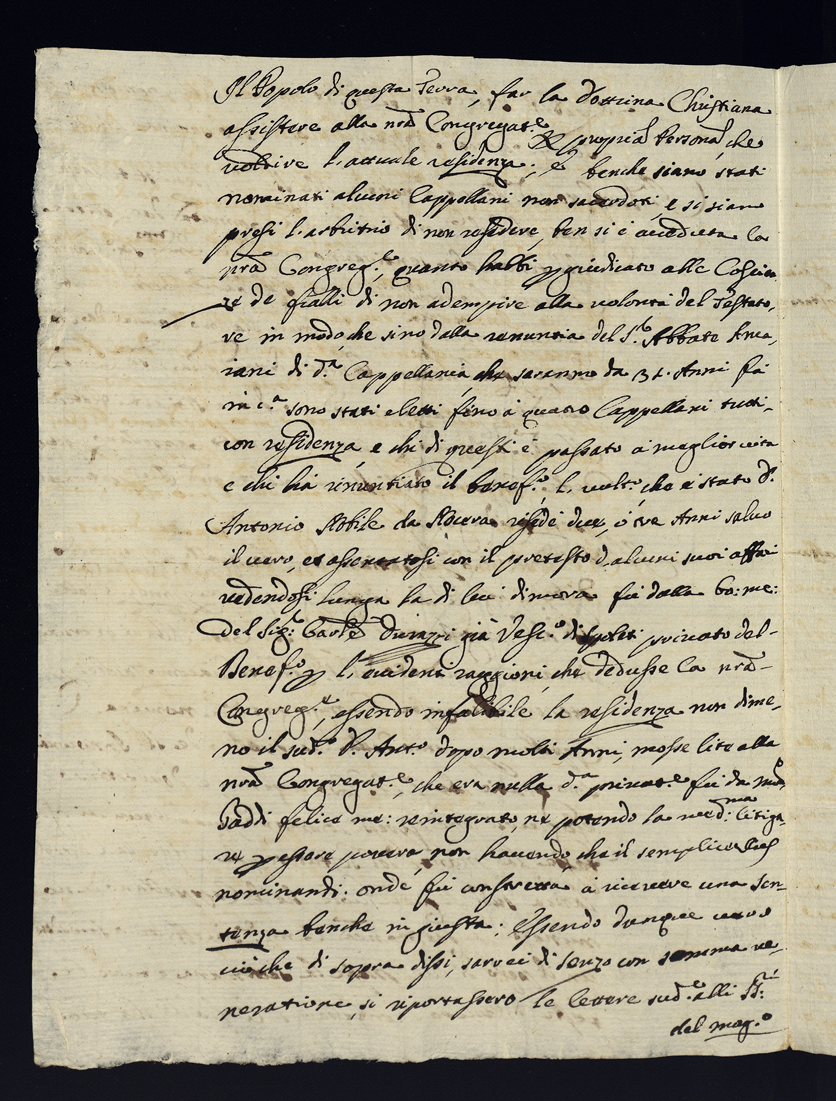 Il Popolo di questa Terra, far la Dottrina Christiana
assistere alla nrã Congregat.e propria Persona, che
l'attuale residenza; e benche siano stati
nominati alcuni Cappellani non sacerdoti, e si sian
presi l'arbitrio di non risedere, ben si è avveduta la
nrã Congreg.e, quanto habbi pregiudicato alle Coscien,
ze de fratelli di non adempire alla volontà del Testato,
re in modo, che sino dalla renuntia del S.r Abbate
iani di d.a Cappellania, che saranno da 34. Anni fà
in c.a sono stati eletti fino à quatro Cappellani tutti
con residenza e chi di questi è passato à miglior vita
e chi hà rinuntiato il benef.o, l'ult.o, che è stato D.
Antonio Nobile da Nocera risedè due, ò tre Anni salvo
il vero, et assentatosi con il pretesto d'alcuni suoi affari
vedendosi lunga la di lui dimora fù dalla bo: me:
del Sig.r Card.e Durazzi già Vesc.o di Spoleti privato del
Benef.o p l'evidenti raggioni, che dedusse la nrã
Congreg.e, essendo infalibile la residenza non dime,
no il sud.o D. Ant.o dopo molti Anni, mosse lite alla
nrã Congregat.e, che era nulla d.a privat.e fù da
Gaddi felice me: reintegrato, ne potendo la med.ma litiga,
re p essere povera, non havendo che il semplice Ius
nominandi: onde fù constretta à ricevere una sen
tenza benche ingiusta: Essendo dunque vero
ciò che di sopra dissi, sarei di senzo con somma ve,
neratione, si riportassero le lettere sud.e alli SS.ri
del mag.o